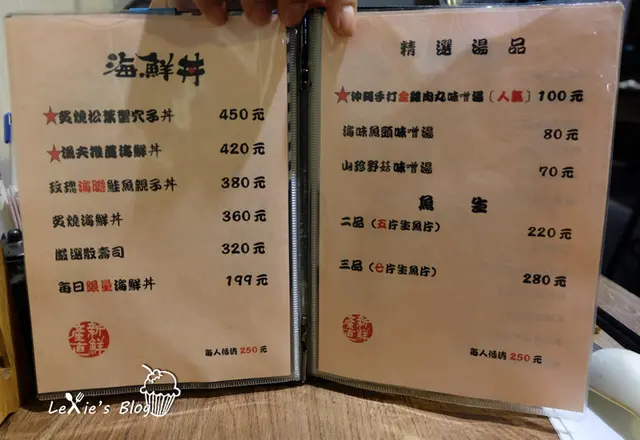 海鮮丼
★炙燒松葉蟹穴子丼 450元
★漁夫推薦海鮮丼 420元
玫瑰海膽鮭魚親子丼 380元
炙燒海鮮丼 360元
嚴選散壽司 320元
每日限量海鮮丼 199元
新鮮產直
每人低消 250元
精選湯品
★沖岡手打金雞肉丸味噌湯〔人氣〕100元
海味魚頭味噌湯 80元
山珍野菇味噌湯 70元
魚生
二品（五片生魚片） 220元
三品（七片生魚片） 280元
新鮮產直
每人低消 250元
LeXie's Blog